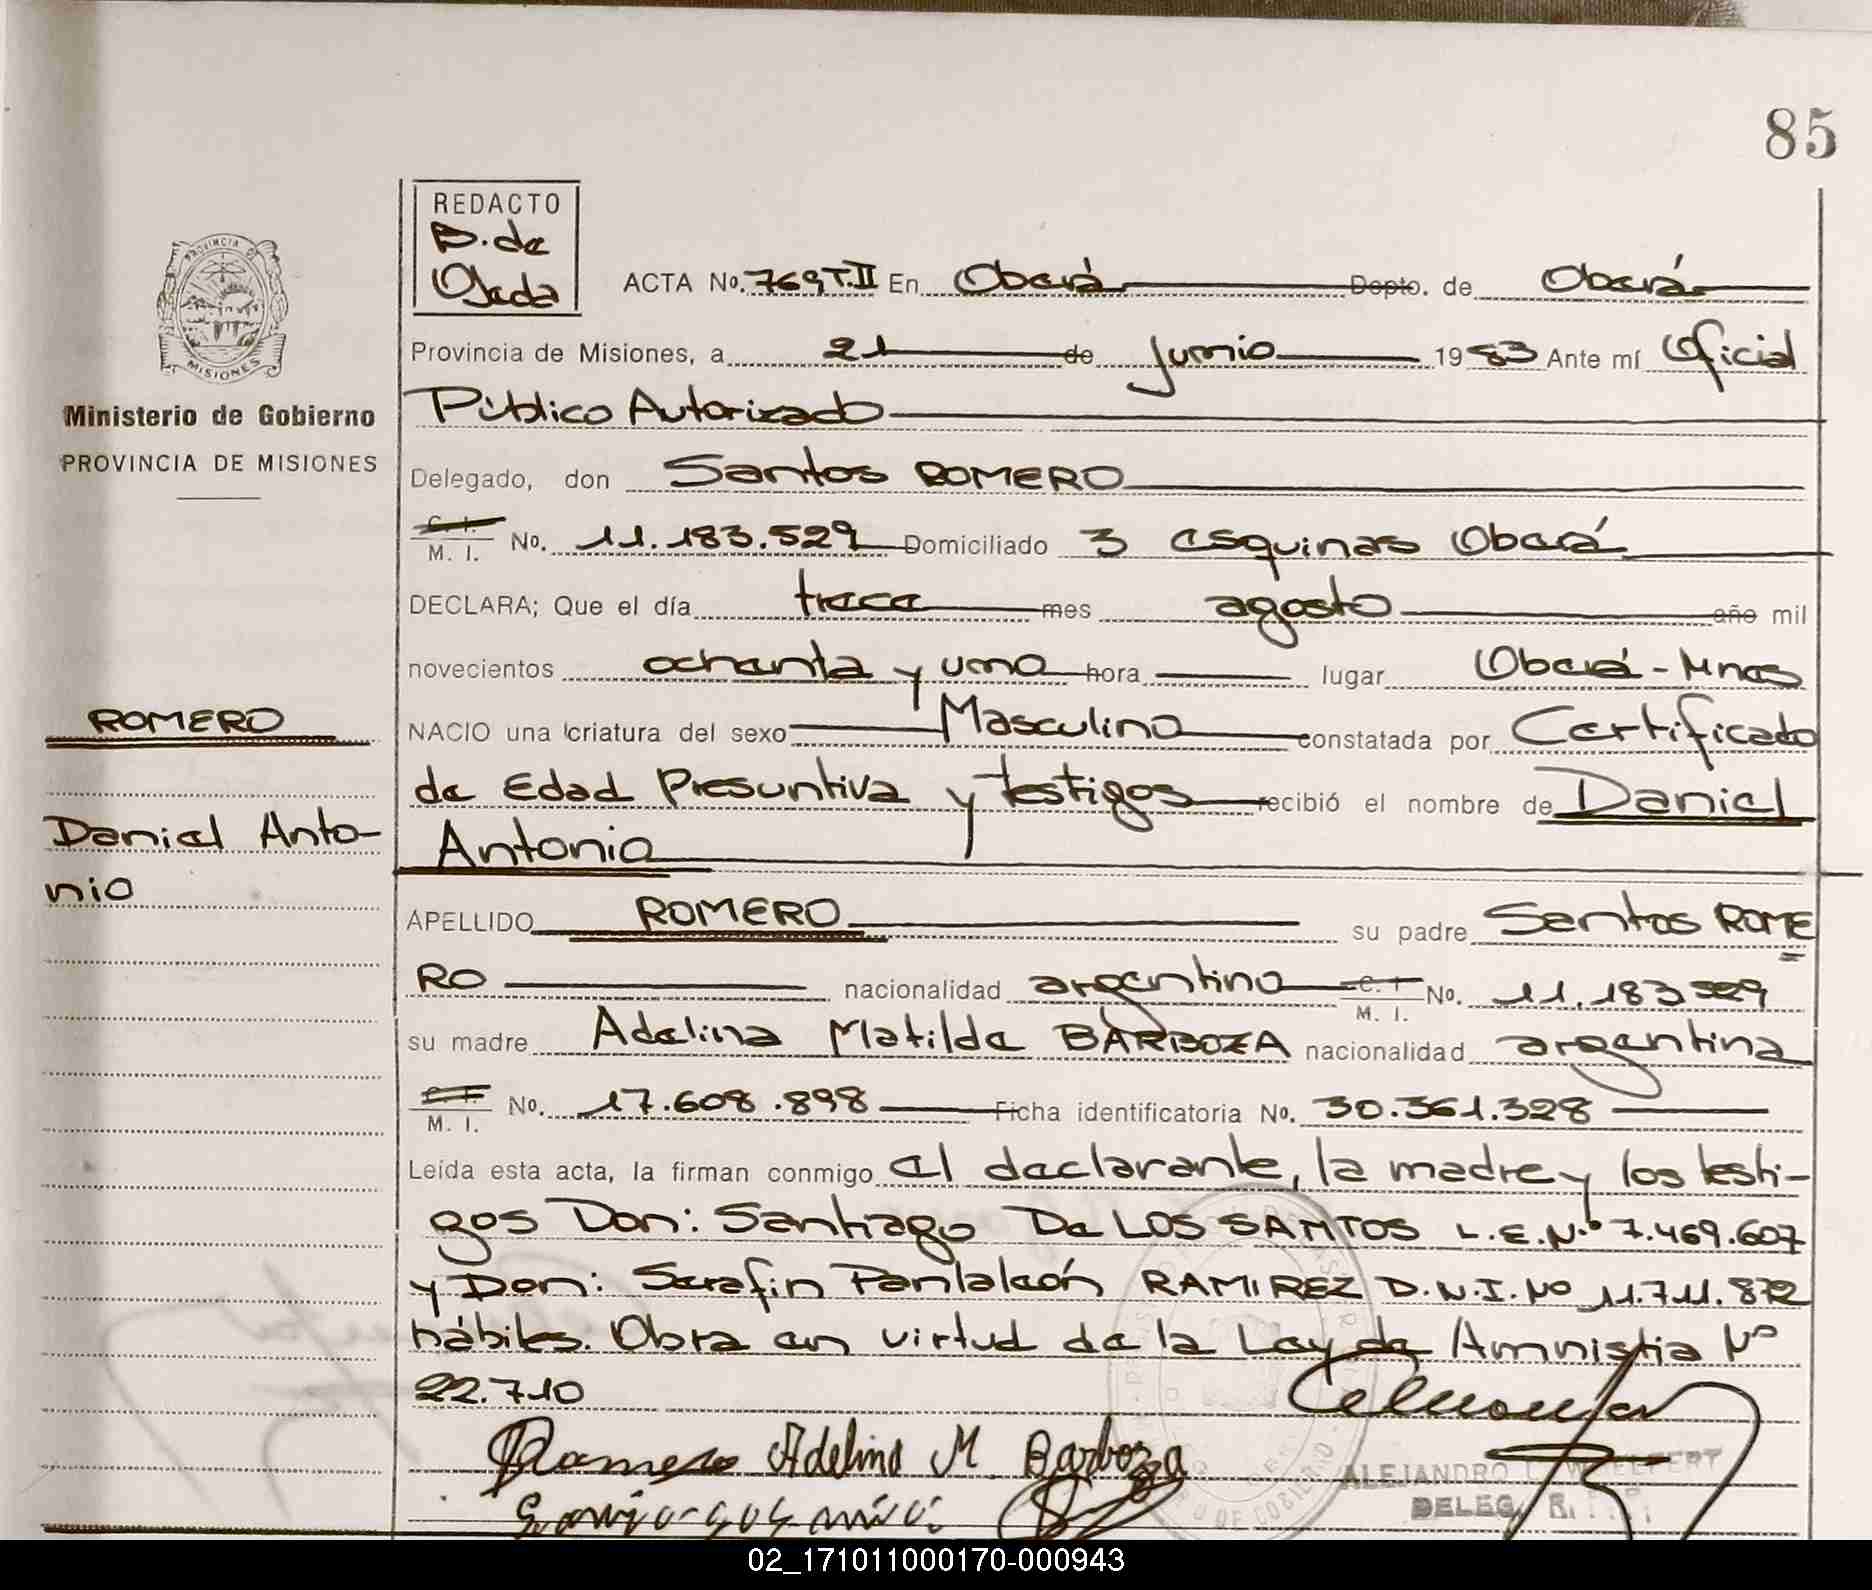 85
REDACTO
B. de
Ojeda
ACTA No. 769 T.II En Oberá Depto. de Oberá
Provincia de Misiones, a 21 de junio 1983 Ante mí Oficial
Público Autorizado
Delegado, don Santos ROMERO
C. I.
M. I. No. 11.183.529 Domiciliado 3 esquinas Oberá
DECLARA; Que el día trece mes agosto año mil
novecientos ochenta y uno hora lugar Oberá - Mnes
NACIO una criatura del sexo Masculino constatada por Certificado
de Edad Presuntiva y testigos recibió el nombre de Daniel
Antonio
APELLIDO ROMERO su padre Santos ROME
RO nacionalidad argentino C. I. M. I. No. 11.183.529
su madre Adelina Matilde BARBOZA nacionalidad argentina
C. I.
M. I. No. 17.608.898 Ficha identificatoria No. 30.361.328
Leída esta acta, la firman conmigo el declarante, la madre y los testi-
gos Don: Santiago De LOS SANTOS L.E.Nº 7.469.607
y Don: Serafin Pantaleón RAMIREZ D.N.I. Nº 11.711.872
hábiles. Obra en virtud de la Ley de Amnistia Nº
22.710
Romero Adelina M. Barboza
ALEJANDRO
DELEG. R.
PROVINCIA DE
MISIONES
Ministerio de Gobierno
PROVINCIA DE MISIONES
ROMERO
Daniel Anto-
nio
02_171011000170-000943